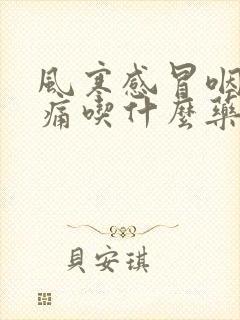 風寒感冒咽
痛喫什麼藥
貝安琪